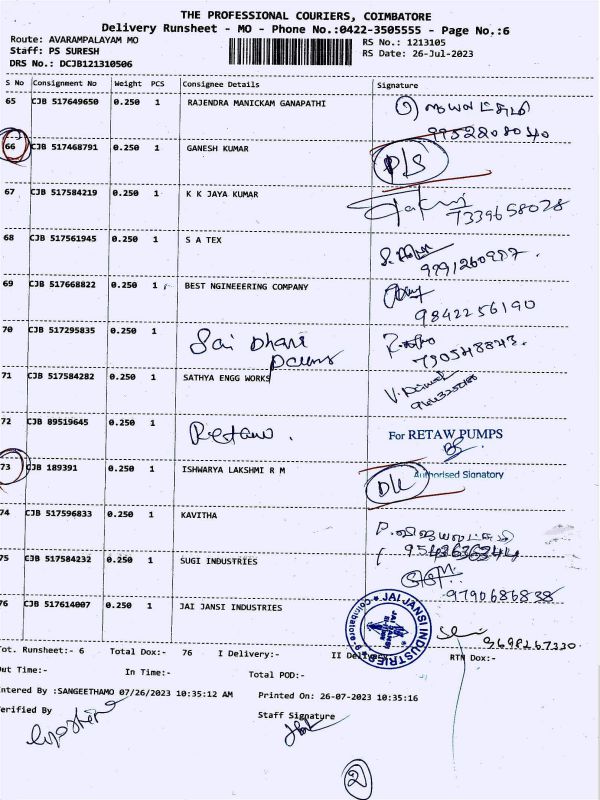 THE PROFESSIONAL COURIERS, COIMBATORE
Delivery Runsheet - MO - Phone No.:0422-3505555 - Page No.:6
Route: AVARAMPALAYAM MO
RS No.: 1213105
Staff: PS SURESH
RS Date: 26-Jul-2023
DRS No.: DCJB121310506
S No Consignment No Weight PCS Consignee Details Signature
65 CJB 517649650 0.250 1 RAJENDRA MANICKAM GANAPATHI
9952808040
66 CJB 517468791 0.250 1 GANESH KUMAR
67 CJB 517584219 0.250 1 K K JAYA KUMAR
7339658028
68 CJB 517561945 0.250 1 S A TEX
69 CJB 517668822 0.250 1 BEST NGINEEERING COMPANY
9842256190
70 CJB 517295835 0.250 1 Sai Dhani
71 CJB 517584282 0.250 1 SATHYA ENGG WORKS
72 CJB 89519645 0.250 1
For RETAW PUMPS
Authorised Signatory
73 CJB 189391 0.250 1 ISHWARYA LAKSHMI R M
74 CJB 517596833 0.250 1 KAVITHA
75 CJB 517584232 0.250 1 SUGI INDUSTRIES
9790686838
76 CJB 517614007 0.250 1 JAI JANSI INDUSTRIES
JAI JANSI INDUSTRIES
Coimbatore
9698167330
Tot. Runsheet:- 6 Total Dox:- 76 I Delivery:- II Delivery:- RTN Dox:-
Out Time:- In Time:- Total POD:-
Entered By :SANGEETHAMO 07/26/2023 10:35:12 AM Printed On: 26-07-2023 10:35:16
Verified By Staff Signature
2